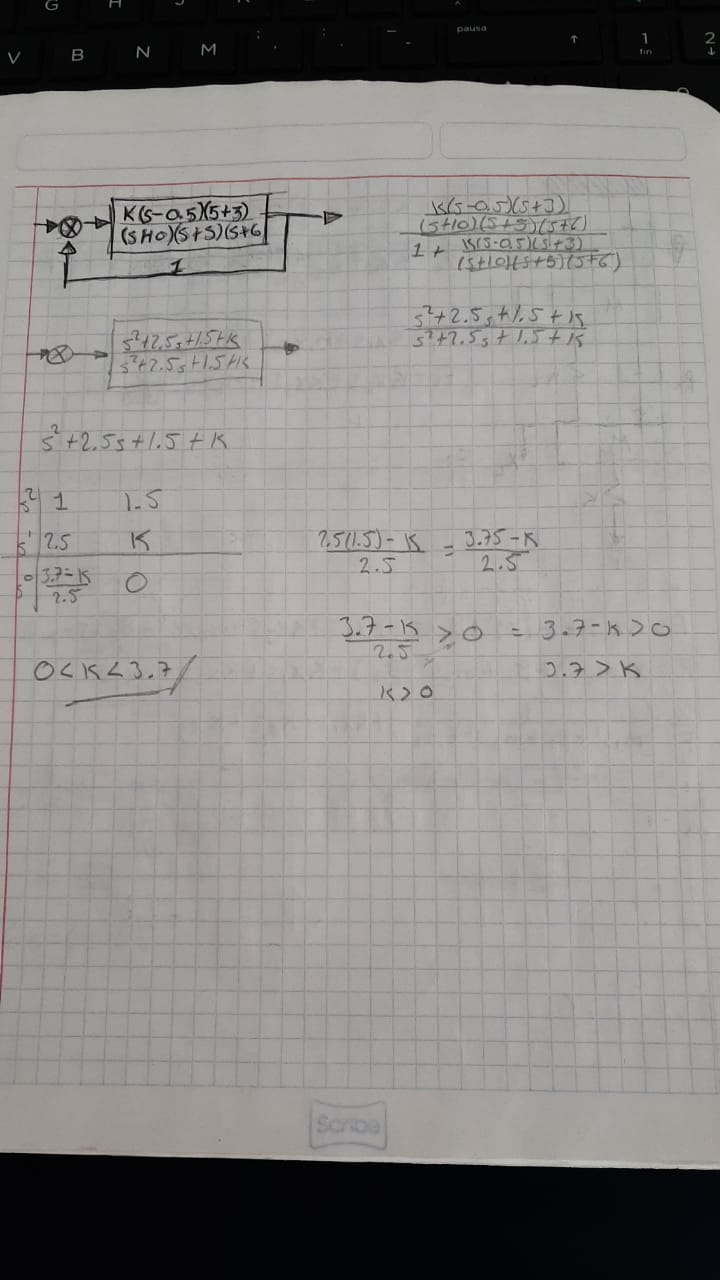 G H
V B N M : ; - _ pausa ↑ 1 fin 2 ↓
K(s-0.5)(s+3)
(s+10)(s+5)(s+6
1
K(s-0.5)(s+3)
(s+10)(s+5)(s+6)
1 + K(s-0.5)(s+3)
(s+10)(s+5)(s+6)
s²+2.5s+1.5+K
s²+2.5s+1.5+K
s²+2.5s+1.5+K
s²+2.5s+1.5+K
s²+2.5s+1.5+K
s² 1 1.5
s¹ 2.5 K
s⁰ 3.7-K 0
2.5
2.5(1.5)-K = 3.75-K
2.5 2.5
3.7-K > 0 = 3.7-K>0
2.5
3.7>K
K>0
0<K<3.7
Scribe